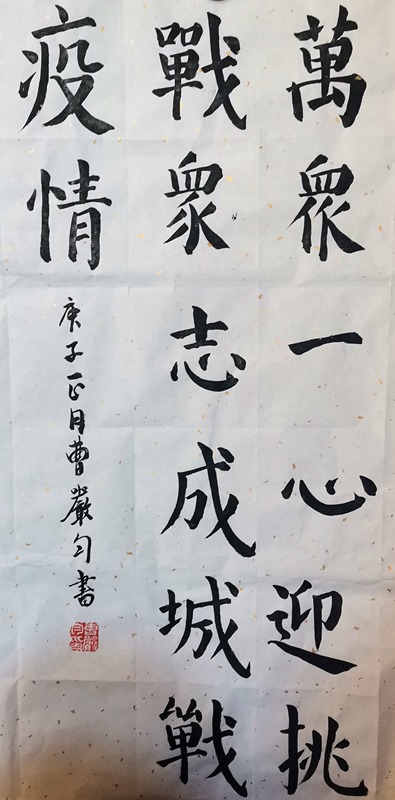 萬眾一心迎挑
戰眾志成城戰
疫情
庚子正月曹嚴勻書